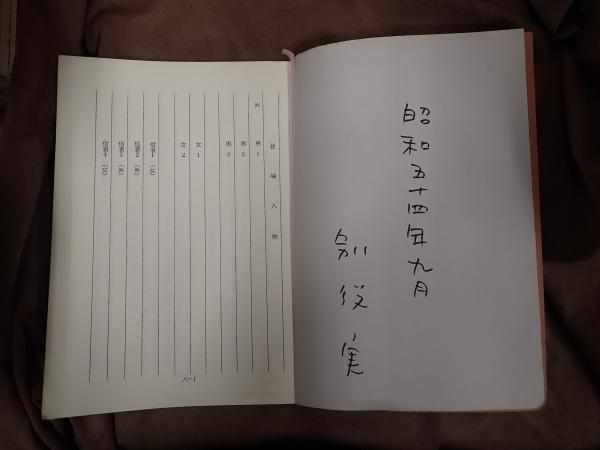 昭和五十四年九月
別役実
登場人物
男1
男2
男3
女1
女2
信者1（女）
信者2（男）
信者3（男）
信者4（女）
八ー1